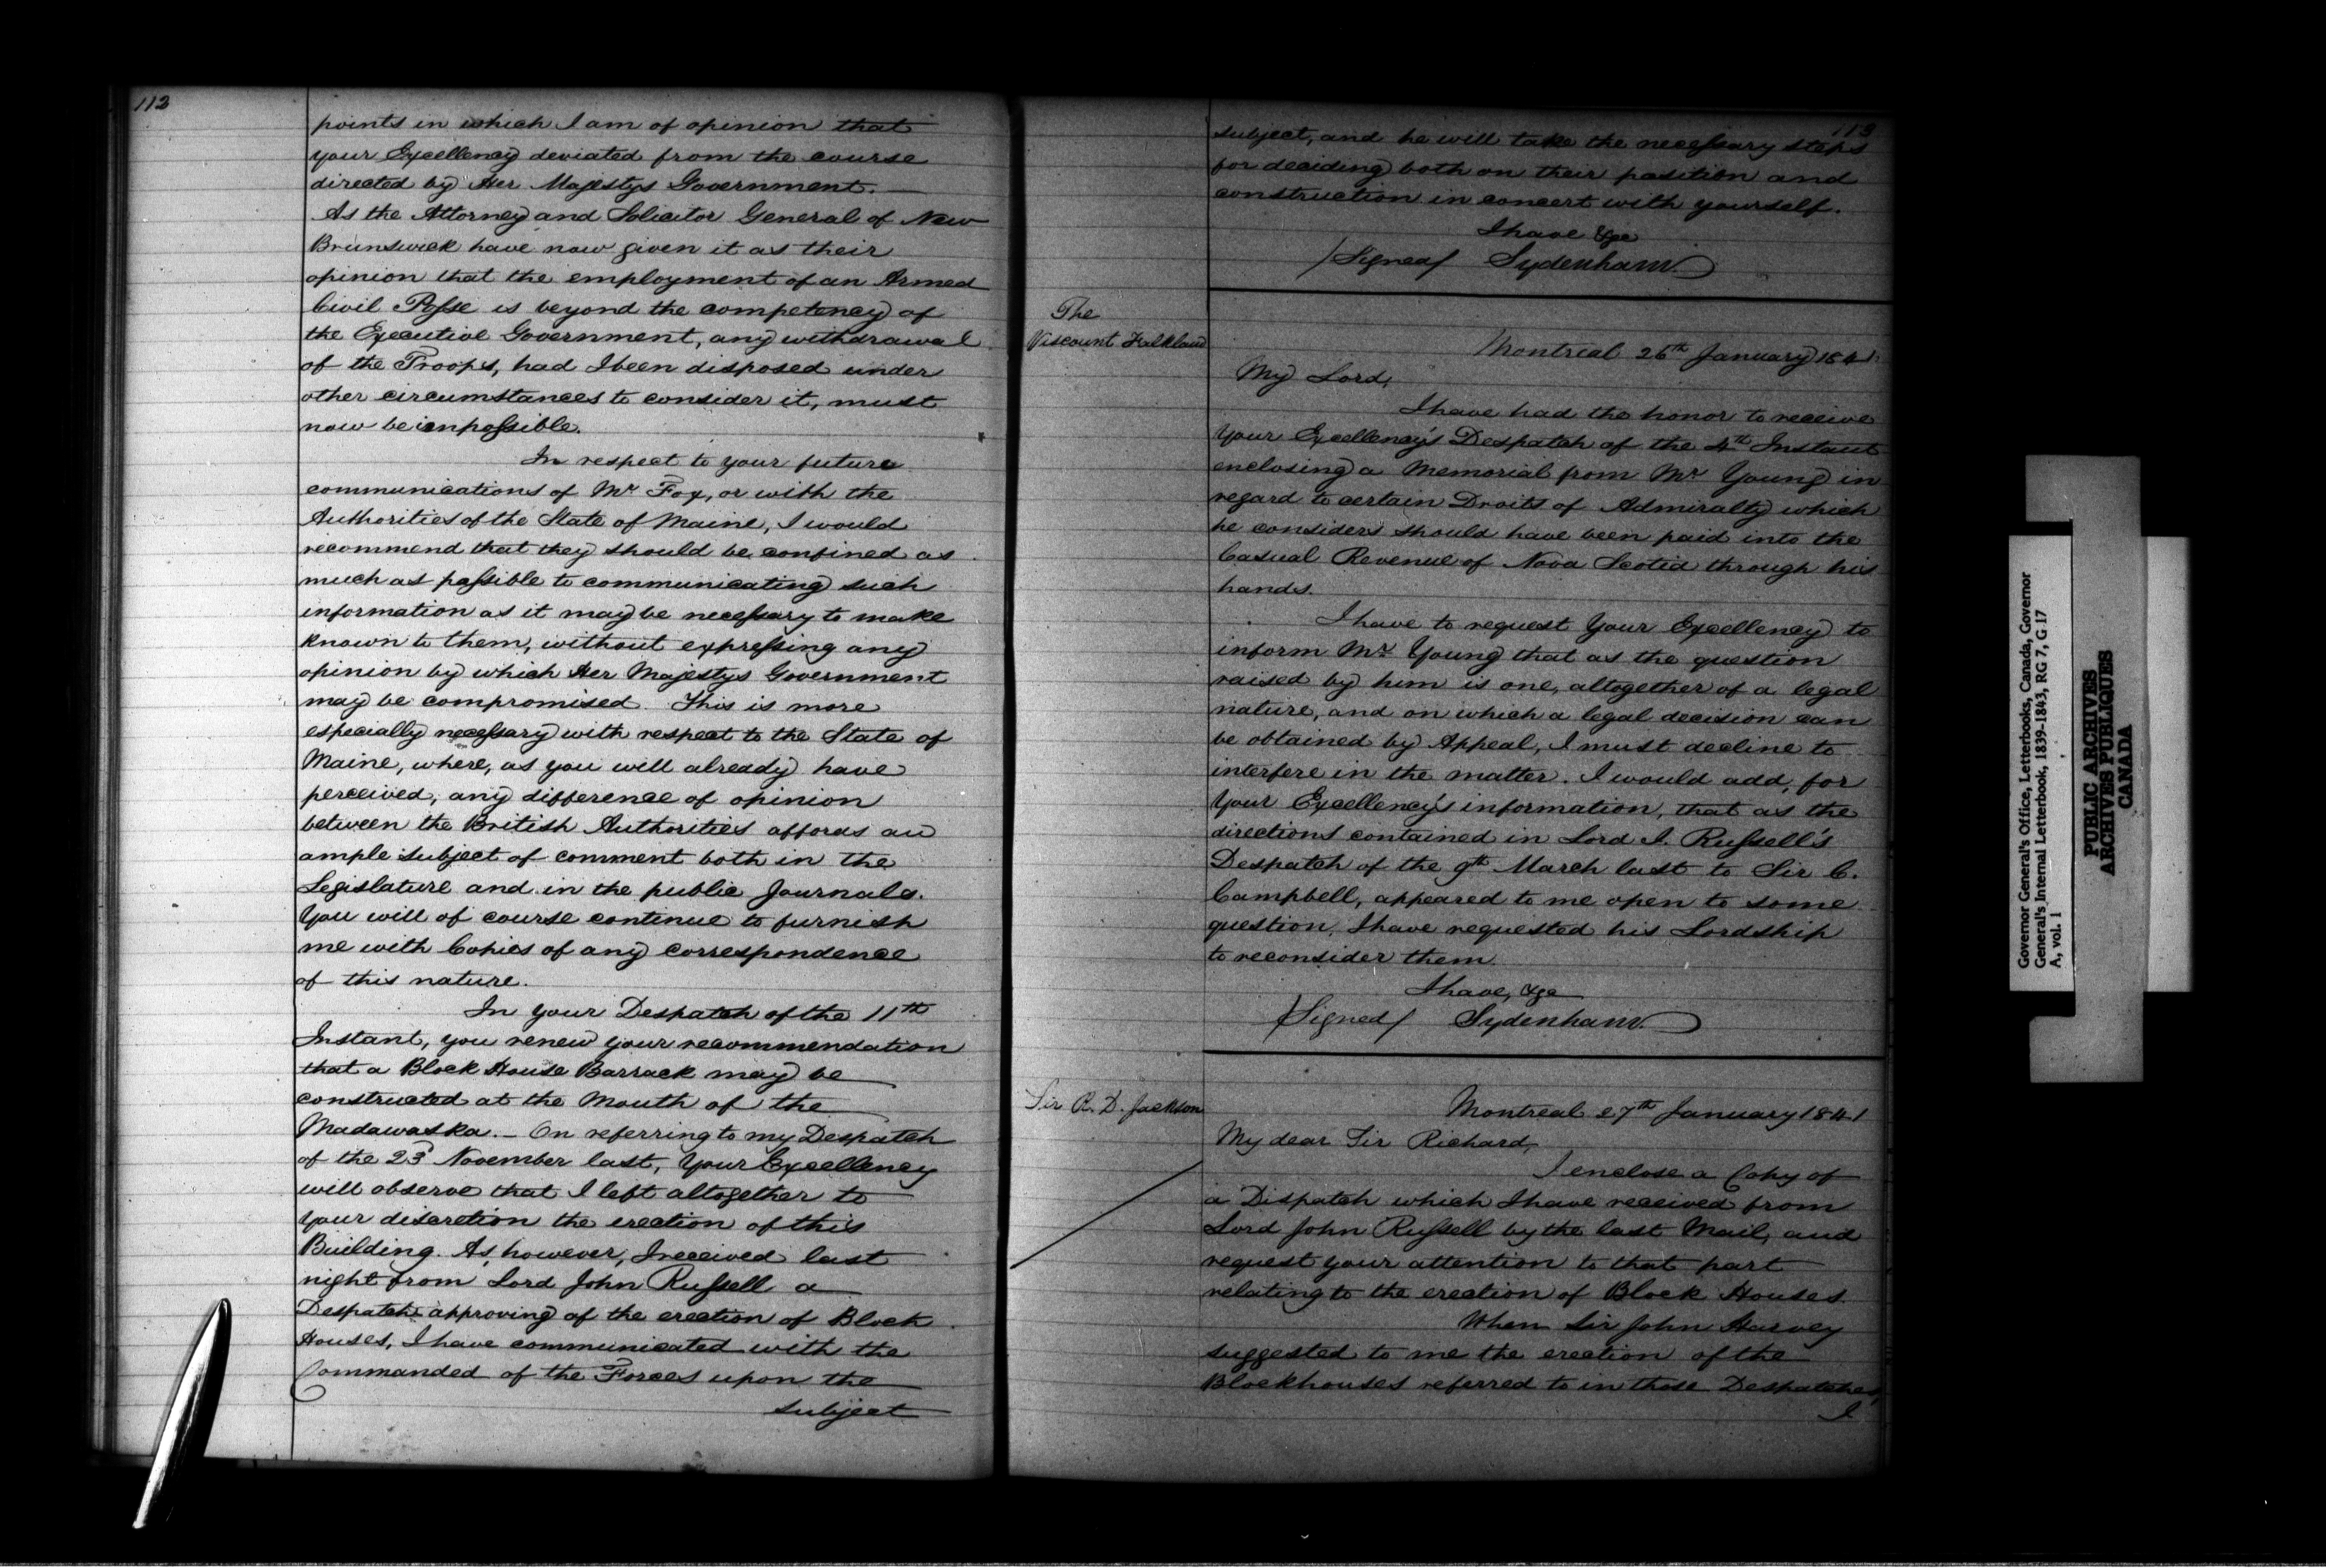 112
points in which I am of opinion that
your Excellency deviated from the course
directed by Her Majestys Government.
As the Attorney and Solicitor General of New
Brunswick have now given it as their
opinion that the employment of an Armed
Civil Posse is beyond the competency of
the Executive Government, any withdrawal
of the Troops, had I been disposed under
other circumstances to consider it, must
now be impossible.
In respect to your future
communications of Mr Fox, or with the
Authorities of the State of Maine, I would
recommend that they should be confined as
much as possible to communicating such
information as it may be necessary to make
known to them, without expressing any
opinion by which Her Majestys Government
may be compromised. This is more
especially necessary with respect to the State of
Maine, where, as you will already have
perceived, any difference of opinion
between the British Authorities affords an
ample subject of comment both in the
Legislature and in the public Journals.
You will of course continue to furnish
me with Copies of any correspondence
of this nature.
In your Despatch of the 11th
Instant, you renew your recommendation
that a Block House Barrack may be
constructed at the Mouth of the
Madawaska. - On referring to my Despatch
of the 23d November last, Your Excellency
will observe that I left altogether to
your discretion the erection of this
Building. As, however, I received last
night from Lord John Russell a
Despatch approving of the erection of Block
Houses, I have communicated with the
Commanded of the Forces upon the
subject
113
subject, and he will take the necessary steps
for deciding both on their position and
construction in concert with yourself.
I have &c
/Signed/ Sydenham.
The
Viscount Falkland
Montreal 26th January 1841.
My Lord,
I have had the honor to receive
Your Excellency's Despatch of the 4th Instant
enclosing a Memorial from Mr Young in
regard to certain Droits of Admiralty which
he considers should have been paid into the
Casual Revenue of Nova Scotia through his
hands.
I have to request Your Excellency to
inform Mr Young that as the question
raised by him is one, altogether of a legal
nature, and on which a legal decision can
be obtained by Appeal, I must decline to
interfere in the matter. I would add, for
Your Excellency's information, that as the
directions contained in Lord J. Russell's
Despatch of the 9th March last to Sir C.
Campbell, appeared to me open to some
question, I have requested his Lordship
to reconsider them.
I have, &c
/Signed/ Sydenham.
Sir R. D. Jackson
Montreal 27th January 1841
My dear Sir Richard,
I enclose a Copy of
a Dispatch which I have received from
Lord John Russell by the last Mail, and
request your attention to that part
relating to the erection of Block Houses.
When Sir John Harvey
suggested to me the erection of the
Blockhouses referred to in those Despatches,
I
Governor General's Office, Letterbooks, Canada, Governor
General's Internal Letterbook, 1839-1843, RG 7, G 17
A, vol. 1
PUBLIC ARCHIVES
ARCHIVES PUBLIQUES
CANADA